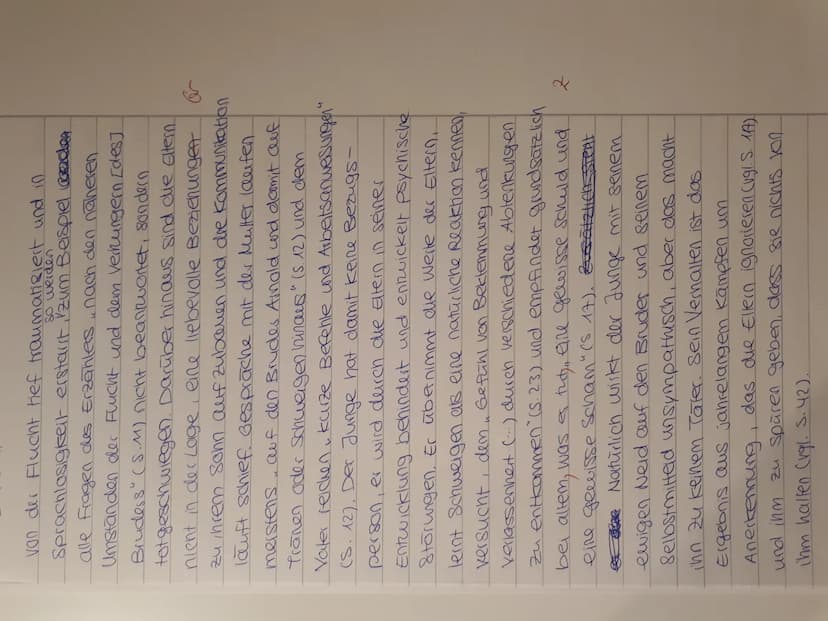 von der Flucht tief traumatisiert und in
so werden
Sprachlosigkeit erstarrt, zum Beispiel
alle Fragen des Erzählers „nach den näheren
Umständen der Flucht und dem Verhungern [des]
Bruders" (S. 11) nicht beantwortet, sondern
totgeschwiegen. Darüber hinaus sind die Eltern
nicht in der Lage, eine liebevolle Beziehungen Gr
zu ihrem Sohn aufzubauen und die Kommunikation
läuft schief. Gespräche mit der Mutter laufen
meistens „auf den Bruder Arnold und damit auf
Tränen oder Schweigen hinaus" (S. 12) und dem
Vater reichen „kurze Befehle und Arbeitsanweisungen"
(S. 12). Der Junge hat damit keine Bezugs-
person, er wird durch die Eltern in seiner
Entwicklung behindert und entwickelt psychische
Störungen. Er übernimmt die Werte der Eltern,
lernt Schweigen als eine natürliche Reaktion kennen,
versucht, dem „Gefühl von Beklemmung und
Verlassenheit (...) durch verschiedene Ablenkungen
zu entkommen" (S. 23) und empfindet grundsätzlich
bei allem, was er tut, „eine gewisse Schuld und Z
eine gewisse Scham" (S. 17).
Natürlich wirkt der Junge mit seinem
ewigen Neid auf den Bruder und seinem
Selbstmitleid unsympathisch, aber das macht
ihn zu keinem Täter. Sein Verhalten ist das
Ergebnis aus jahrelangen Kämpfen um
Anerkennung, das die Eltern ignorieren (vgl. S. 17)
und ihm zu spüren geben, dass sie nichts von
ihm halten (vgl. S. 42).